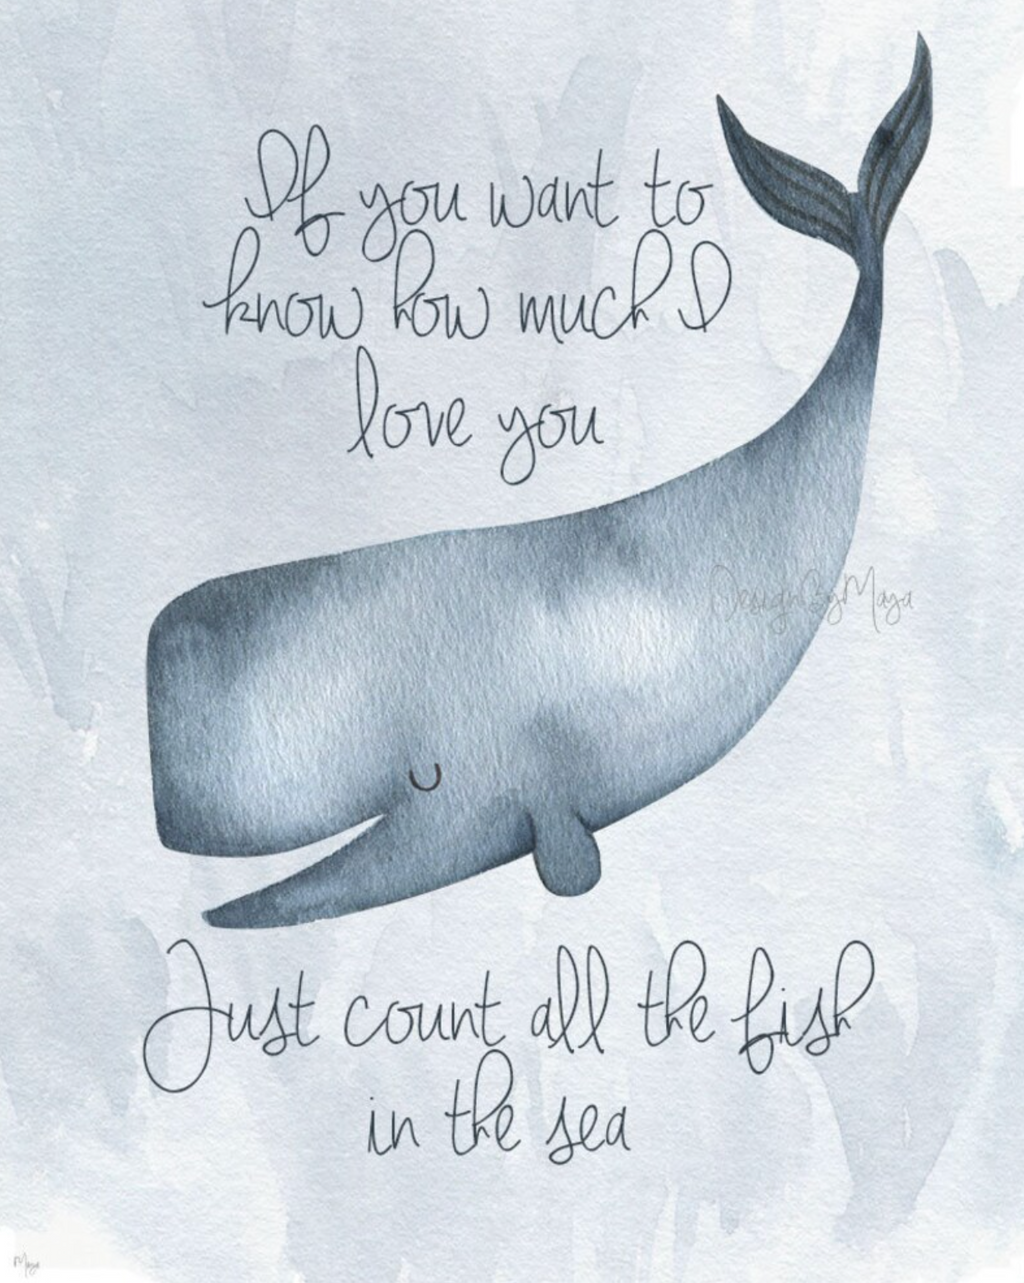 If you want to
know how much I
love you
DesignByMaya
Just count all the fish
in the sea
Maya